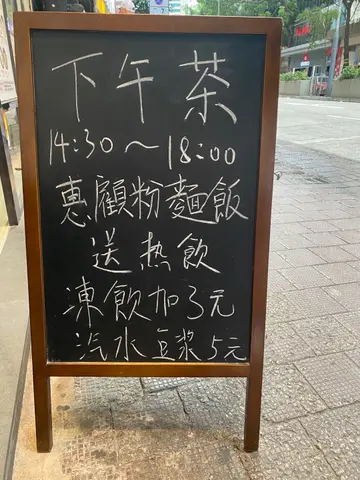 下午茶
14:30～18:00
惠顧粉麵飯
送热飲
凍飲加3元
汽水豆浆5元